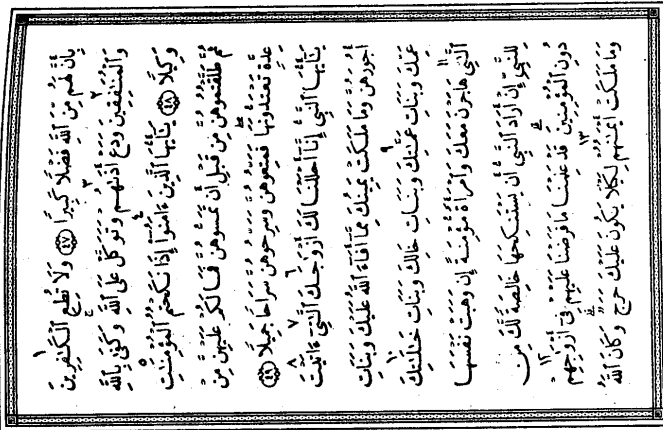 بِأَنَّ لَهُم مِّنَ ٱللَّهِ فَضْلًا كَبِيرًا ٤٧ وَلَا تُطِعِ ٱلْكَٰفِرِينَ ١
وَٱلْمُنَٰفِقِينَ ٢ وَدَعْ أَذَىٰهُمْ ٣ وَتَوَكَّلْ عَلَى ٱللَّهِ ۚ وَكَفَىٰ بِٱللَّهِ
وَكِيلًا ٤٨ يَٰٓأَيُّهَا ٱلَّذِينَ ءَامَنُوٓا۟ إِذَا نَكَحْتُمُ ٤ ٱلْمُؤْمِنَٰتِ ٥
ثُمَّ طَلَّقْتُمُوهُنَّ مِن قَبْلِ أَن تَمَسُّوهُنَّ فَمَا لَكُمْ عَلَيْهِنَّ مِنْ
عِدَّةٍ تَعْتَدُّونَهَا ۖ فَمَتِّعُوهُنَّ وَسَرِّحُوهُنَّ سَرَاحًا جَمِيلًا ٤٩
يَٰٓأَيُّهَا ٱلنَّبِىُّ إِنَّآ أَحْلَلْنَا لَكَ ٦ أَزْوَٰجَكَ ٱلَّٰتِىٓ ٧ ءَاتَيْتَ ٨
أُجُورَهُنَّ وَمَا مَلَكَتْ يَمِينُكَ مِمَّآ أَفَآءَ ٱللَّهُ عَلَيْكَ وَبَنَاتِ
عَمِّكَ وَبَنَاتِ عَمَّٰتِكَ ٩ وَبَنَاتِ خَالِكَ وَبَنَاتِ خَٰلَٰتِكَ ١٠
ٱلَّٰتِى ١١ هَاجَرْنَ مَعَكَ وَٱمْرَأَةً مُّؤْمِنَةً إِن وَهَبَتْ نَفْسَهَا
لِلنَّبِىِّ إِنْ أَرَادَ ٱلنَّبِىُّ أَن يَسْتَنكِحَهَا خَالِصَةً لَّكَ مِن
دُونِ ٱلْمُؤْمِنِينَ ۗ قَدْ عَلِمْنَا مَا فَرَضْنَا عَلَيْهِمْ فِىٓ أَزْوَٰجِهِمْ ١٢
وَمَا مَلَكَتْ أَيْمَٰنُهُمْ ١٣ لِكَيْلَا يَكُونَ عَلَيْكَ حَرَجٌ ۗ وَكَانَ ٱللَّهُ